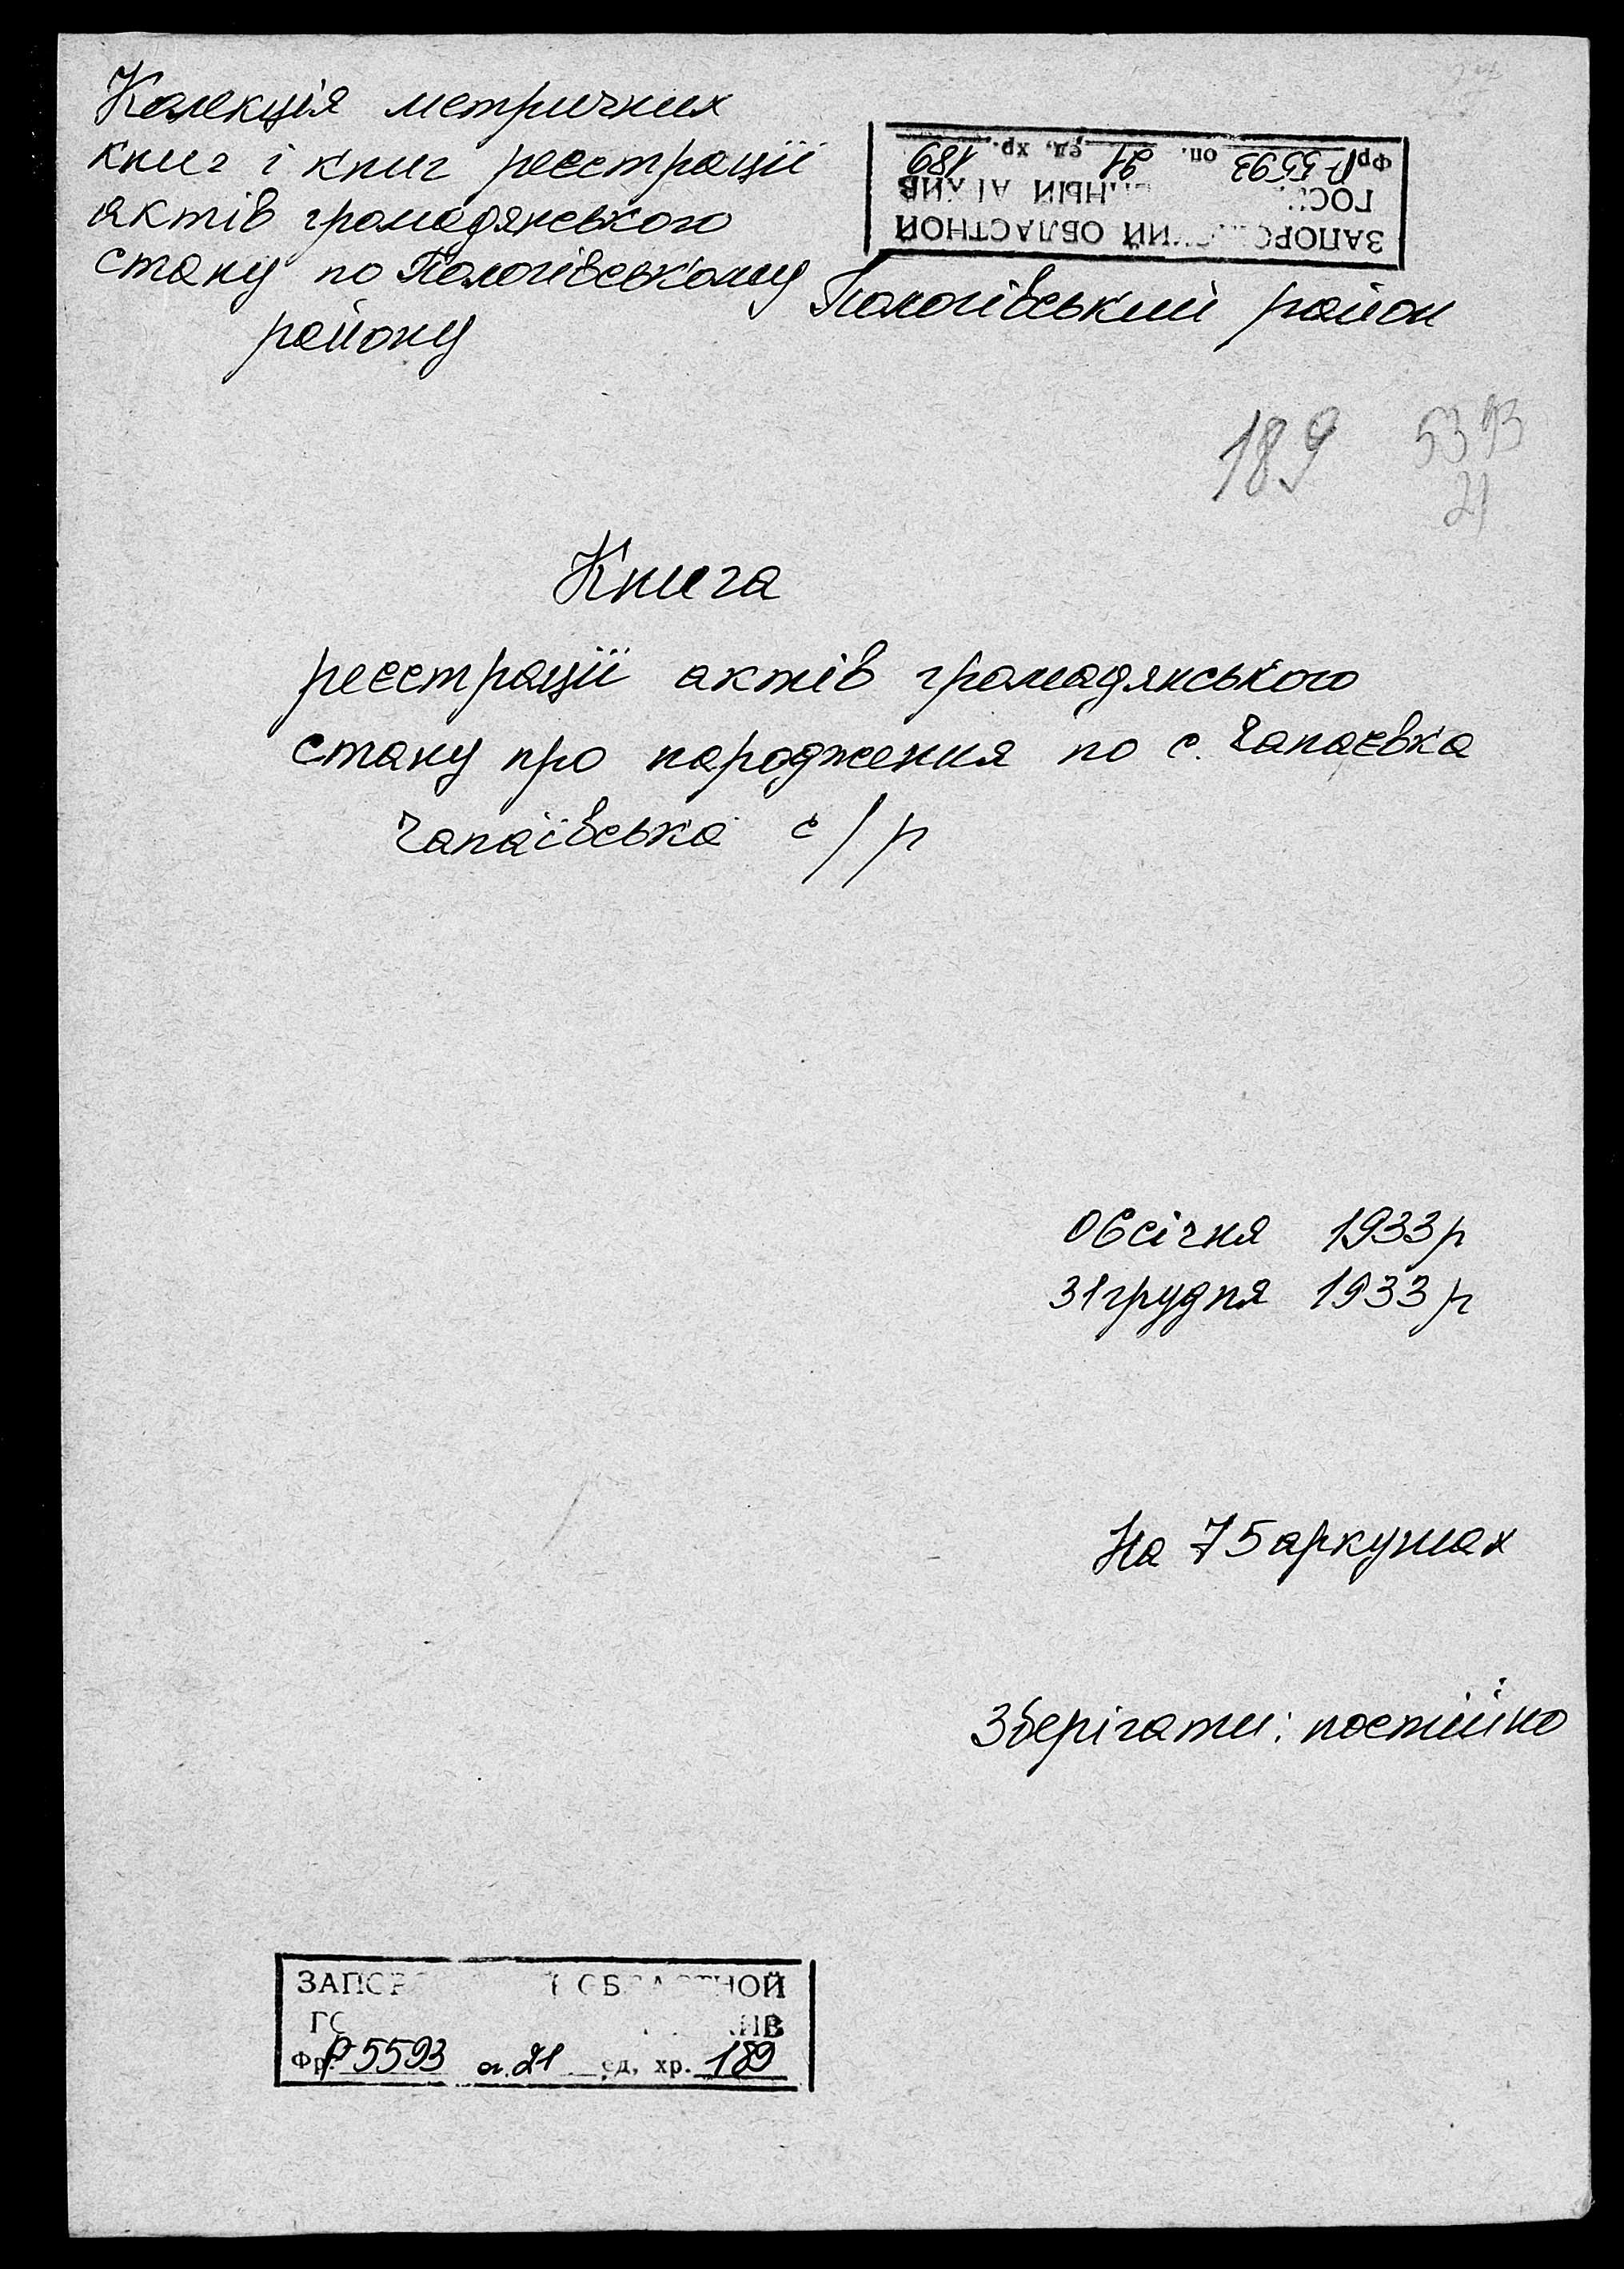 Колекція метричних
книг і книг реєстрації
актів громадянського
стану по Пологівському
району
ОБЛАСТНОЙ
фр Р-5593 оп. 21 ед. хр. 189
Пологівський район
189 5393
21
Книга
реєстрації актів громадянського
стану про народження по с. Чапаєвка
Чапаївська с/р
06 січня 1933 р
31 грудня 1933 р
На 75 аркушах
Зберігати: постійно
Фр. Р 5593 о. 21 ед. хр. 189